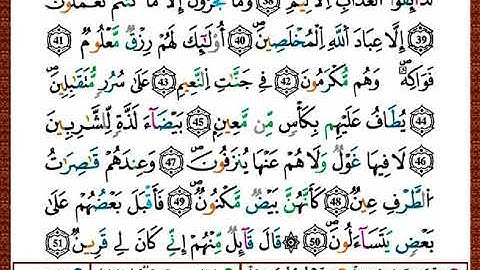 لَذَآئِقُوا۟ ٱلْعَذَابِ ٱلْأَلِيمِ ۝٣٨ وَمَا تُجْزَوْنَ إِلَّا مَا كُنتُمْ تَعْمَلُونَ
۝٣٩ إِلَّا عِبَادَ ٱللَّهِ ٱلْمُخْلَصِينَ ۝٤٠ أُو۟لَٰٓئِكَ لَهُمْ رِزْقٌ مَّعْلُومٌ ۝٤١
فَوَٰكِهُ ۖ وَهُم مُّكْرَمُونَ ۝٤٢ فِى جَنَّٰتِ ٱلنَّعِيمِ ۝٤٣ عَلَىٰ سُرُرٍ مُّتَقَٰبِلِينَ
۝٤٤ يُطَافُ عَلَيْهِم بِكَأْسٍ مِّن مَّعِينٍۭ ۝٤٥ بَيْضَآءَ لَذَّةٍ لِّلشَّٰرِبِينَ
۝٤٦ لَا فِيهَا غَوْلٌ وَلَا هُمْ عَنْهَا يُنزَفُونَ ۝٤٧ وَعِندَهُمْ قَٰصِرَٰتُ
ٱلطَّرْفِ عِينٌ ۝٤٨ كَأَنَّهُنَّ بَيْضٌ مَّكْنُونٌ ۝٤٩ فَأَقْبَلَ بَعْضُهُمْ عَلَىٰ
بَعْضٍ يَتَسَآءَلُونَ ۝٥٠ ۞ قَالَ قَآئِلٌ مِّنْهُمْ إِنِّى كَانَ لِى قَرِينٌ ۝٥١